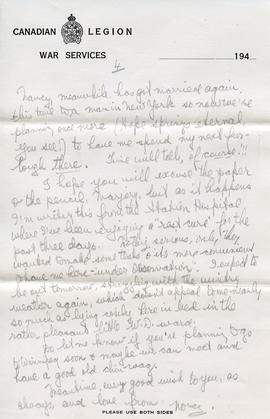 CANADIAN LEGION
WAR SERVICES
194
4
Nancy meanwhile has got married again,
this time to a man in New York so now we're
planning once more (Hope springs eternal
you see!) to have me spend my next fur-
lough there. Time will tell, of course!!!
I hope you will excuse the paper
or the pencil, Marjory, but as it happens
I'm writing this from the Station Hospital
where I've been enjoying a "rest cure" for the
past three days. Nothing serious, they
wanted to make some tests & it's more convenient
to have me here - under observation. I expect to
be out tomorrow, struggling with the wintry
weather again, which doesn't appeal to me nearly
so much as lying cosily here in bed in the
rather pleasant little W.D. ward.
Do let me know if you're planning to go
to Winnipeg soon & maybe we can meet and
have a good old chin-wag.
Meantime, every good wish to you, as
always, and love from
PLEASE USE BOTH SIDES